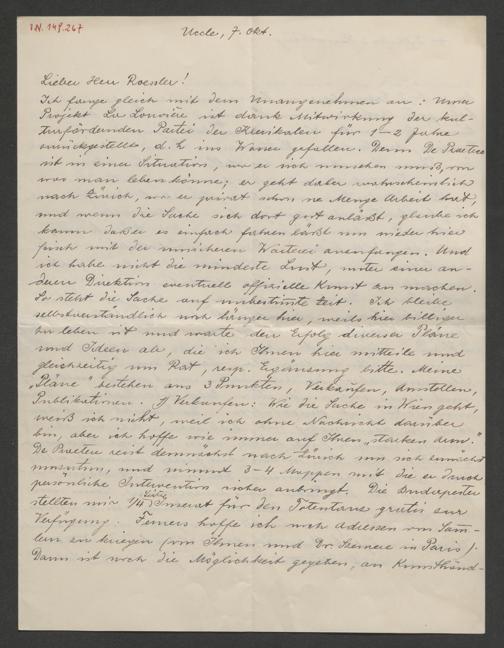 IN. 149.267
Uccle, 7. Okt.
Lieber Herr Roessler!
Ich fange gleich mit dem Unangenehmen an: Unser
Projekt La Louvière ist dank Mitwirkung der kul-
turfördernden Partei der Klerikalen für 1–2 Jahre
zurückgestellt, d.h. ins Wasser gefallen. Denn De Praetere
ist in einer Situation, wo er sich umsehen muß, von
was man leben könne; er geht daher wahrscheinlich
nach Zürich, wo er privat schon ne Menge Arbeit hat,
und wenn die Sache sich dort gut anläßt, glaube ich
kaum daß er es einfach fahren läßt um wieder hier
frisch mit der unsicheren Warterei anzufangen. Und
ich habe nicht die mindeste Lust, unter einer an-
deren Direktion eventuell offizielle Kunst zu machen.
So steht die Sache auf unbestimmte Zeit. Ich bleibe
selbstverständlich noch länger hier, weils hier billiger
zu leben ist und warte den Erfolg diverser Pläne
und Ideen ab, die ich Ihnen hier mitteile und
gleichzeitig um Rat, resp. Ergänzung bitte. Meine
„Pläne" bestehen aus 3 Punkten, Verkaufen, Ausstellen,
Publikationen. Verkaufen: Wie die Sache in Wien geht,
weiß ich nicht, weil ich ohne Nachricht darüber
bin, aber ich hoffe wie immer auf Ihren „starken Arm."
De Praetere reist demnächst nach Zürich um sich zunächst
umzutun, und nimmt 3–4 Mappen mit die er durch
persönliche Intervention sicher anbringt. Die Budapester
stellten mir 1/4 seitig Inserat für den Totentanz gratis zur
Verfügung. Ferners hoffe ich noch Adressen von Sam-
lern zu kriegen (von Ihnen und Dr. Szemere in Paris).
Dann ist noch die Möglichkeit gegeben, an Kunsthänd-